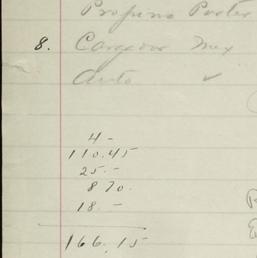 Propino Porter
8. Cargador Mex
Auto ✓
4 -
110.45
25. -
8 70.
18. -
166.15